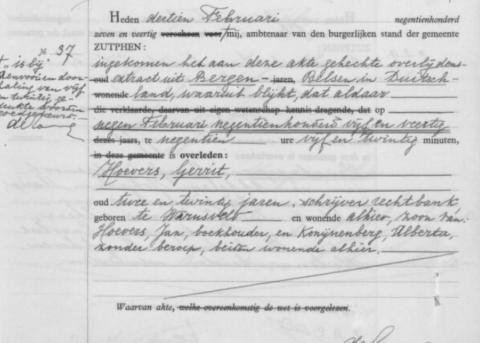 N. 37
Heden dertien Februari negentienhonderd
zeven en veertig verscheen voor mij, ambtenaar van den burgerlijken stand der gemeente
ZUTPHEN:
ingekomen het aan deze akte gehechte overlijdens-
oud extract uit Bergen- jaren, Belsen in Duitsch-
wonende land, waaruit blijkt, dat aldaar
die verklaarde, daarvan uit eigen wetenschap kennis dragende, dat op
negen Februari negentienhonderd vijf en veertig
dezes jaars, te negentien ure vijf en twintig minuten,
in deze gemeente is overleden:
Hoevers, Gerrit,
oud twee en twintig jaren, schrijver rechtbank
geboren te Warnsveld en wonende alhier, zoon van
Hoevers, Jan, boekhouder, en Konijnenberg, Alberta,
zonder beroep, beiden wonende alhier.
Waarvan akte, welke overeenkomstig de wet is voorgelezen.